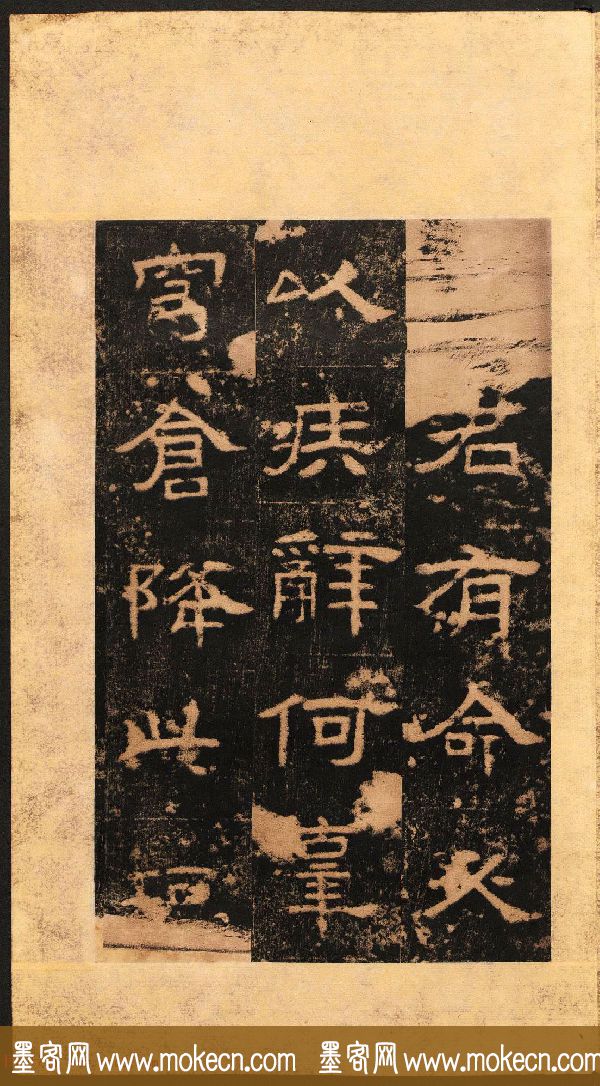 君有命必
以疾辭何辜
穹倉降此
墨客网 www.mokecn.com 墨客网 www.mokecn.com